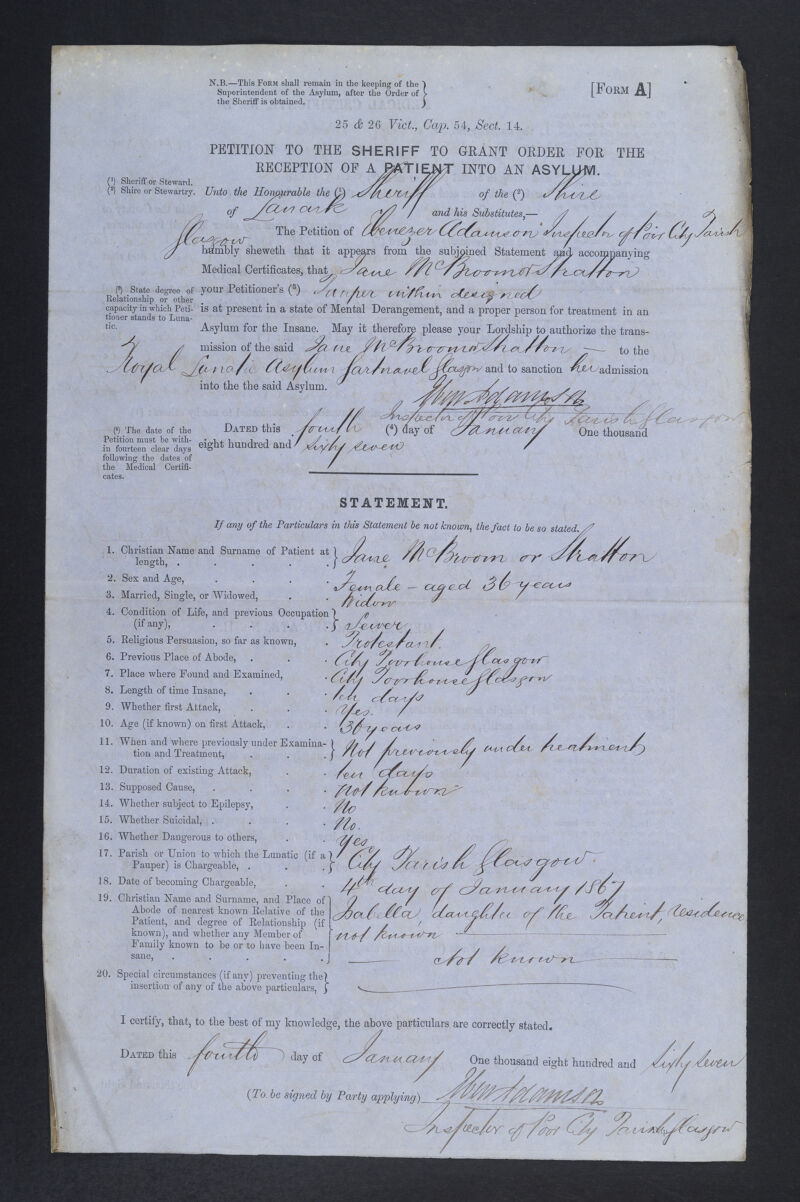 N.B.—This Form shall remain in the keeping of the
Superintendent of the Asylum, after the Order of
the Sheriff is obtained.
[Form A]
25 & 26 Vict., Cap. 54, Sect. 14.
PETITION TO THE SHERIFF TO GRANT ORDER FOR THE
RECEPTION OF A PATIENT INTO AN ASYLUM.
(1) Sheriff or Steward.
(2) Shire or Stewartry.
Unto the Honourable the (1) Sheriff of the (2) Shire
of Lanark and his Substitutes,—
The Petition of Ebenezer Adamson Inspector of Poor City Parish
Glasgow
humbly sheweth that it appears from the subjoined Statement and accompanying
Medical Certificates, that Jane McBroom or Stratton
(3) State degree of
Relationship or other
capacity in which Peti-
tioner stands to Luna-
tic.
your Petitioner's (3) Pauper within designed
is at present in a state of Mental Derangement, and a proper person for treatment in an
Asylum for the Insane. May it therefore please your Lordship to authorize the trans-
mission of the said Jane McBroom or Stratton — to the
Royal Lunatic Asylum Gartnavel Glasgow and to sanction her admission
into the the said Asylum.
Eben Adamson
Inspector of Poor City Parish Glasgow
(4) The date of the
Petition must be with-
in fourteen clear days
following the dates of
the Medical Certifi-
cates.
Dated this fourth (4) day of January One thousand
eight hundred and sixty seven
STATEMENT.
If any of the Particulars in this Statement be not known, the fact to be so stated.
1. Christian Name and Surname of Patient at
length, . Jane McBroom or Stratton
2. Sex and Age, Female – aged 36 years
3. Married, Single, or Widowed, Widow
4. Condition of Life, and previous Occupation
(if any), Sewer
5. Religious Persuasion, so far as known, Protestant.
6. Previous Place of Abode, City Poorhouse Glasgow
7. Place where Found and Examined, City Poorhouse Glasgow
8. Length of time Insane, ten days
9. Whether first Attack, Yes.
10. Age (if known) on first Attack, 36 years
11. When and where previously under Examina-
tion and Treatment, Not previously under treatment
12. Duration of existing Attack, ten days
13. Supposed Cause, not known
14. Whether subject to Epilepsy, No
15. Whether Suicidal, No.
16. Whether Dangerous to others, Yes
17. Parish or Union to which the Lunatic (if a
Pauper) is Chargeable, City Parish Glasgow.
18. Date of becoming Chargeable, 4th day of January 1867
19. Christian Name and Surname, and Place of
Abode of nearest known Relative of the
Patient, and degree of Relationship (if
known), and whether any Member of
Family known to be or to have been In-
sane,
Isabella, daughter of the Patient, residence
not known
— Not known —
20. Special circumstances (if any) preventing the
insertion of any of the above particulars,
I certify, that, to the best of my knowledge, the above particulars are correctly stated.
Dated this fourth day of January One thousand eight hundred and sixty seven
(To be signed by Party applying) Eben Adamson
Inspector of Poor City Parish Glasgow